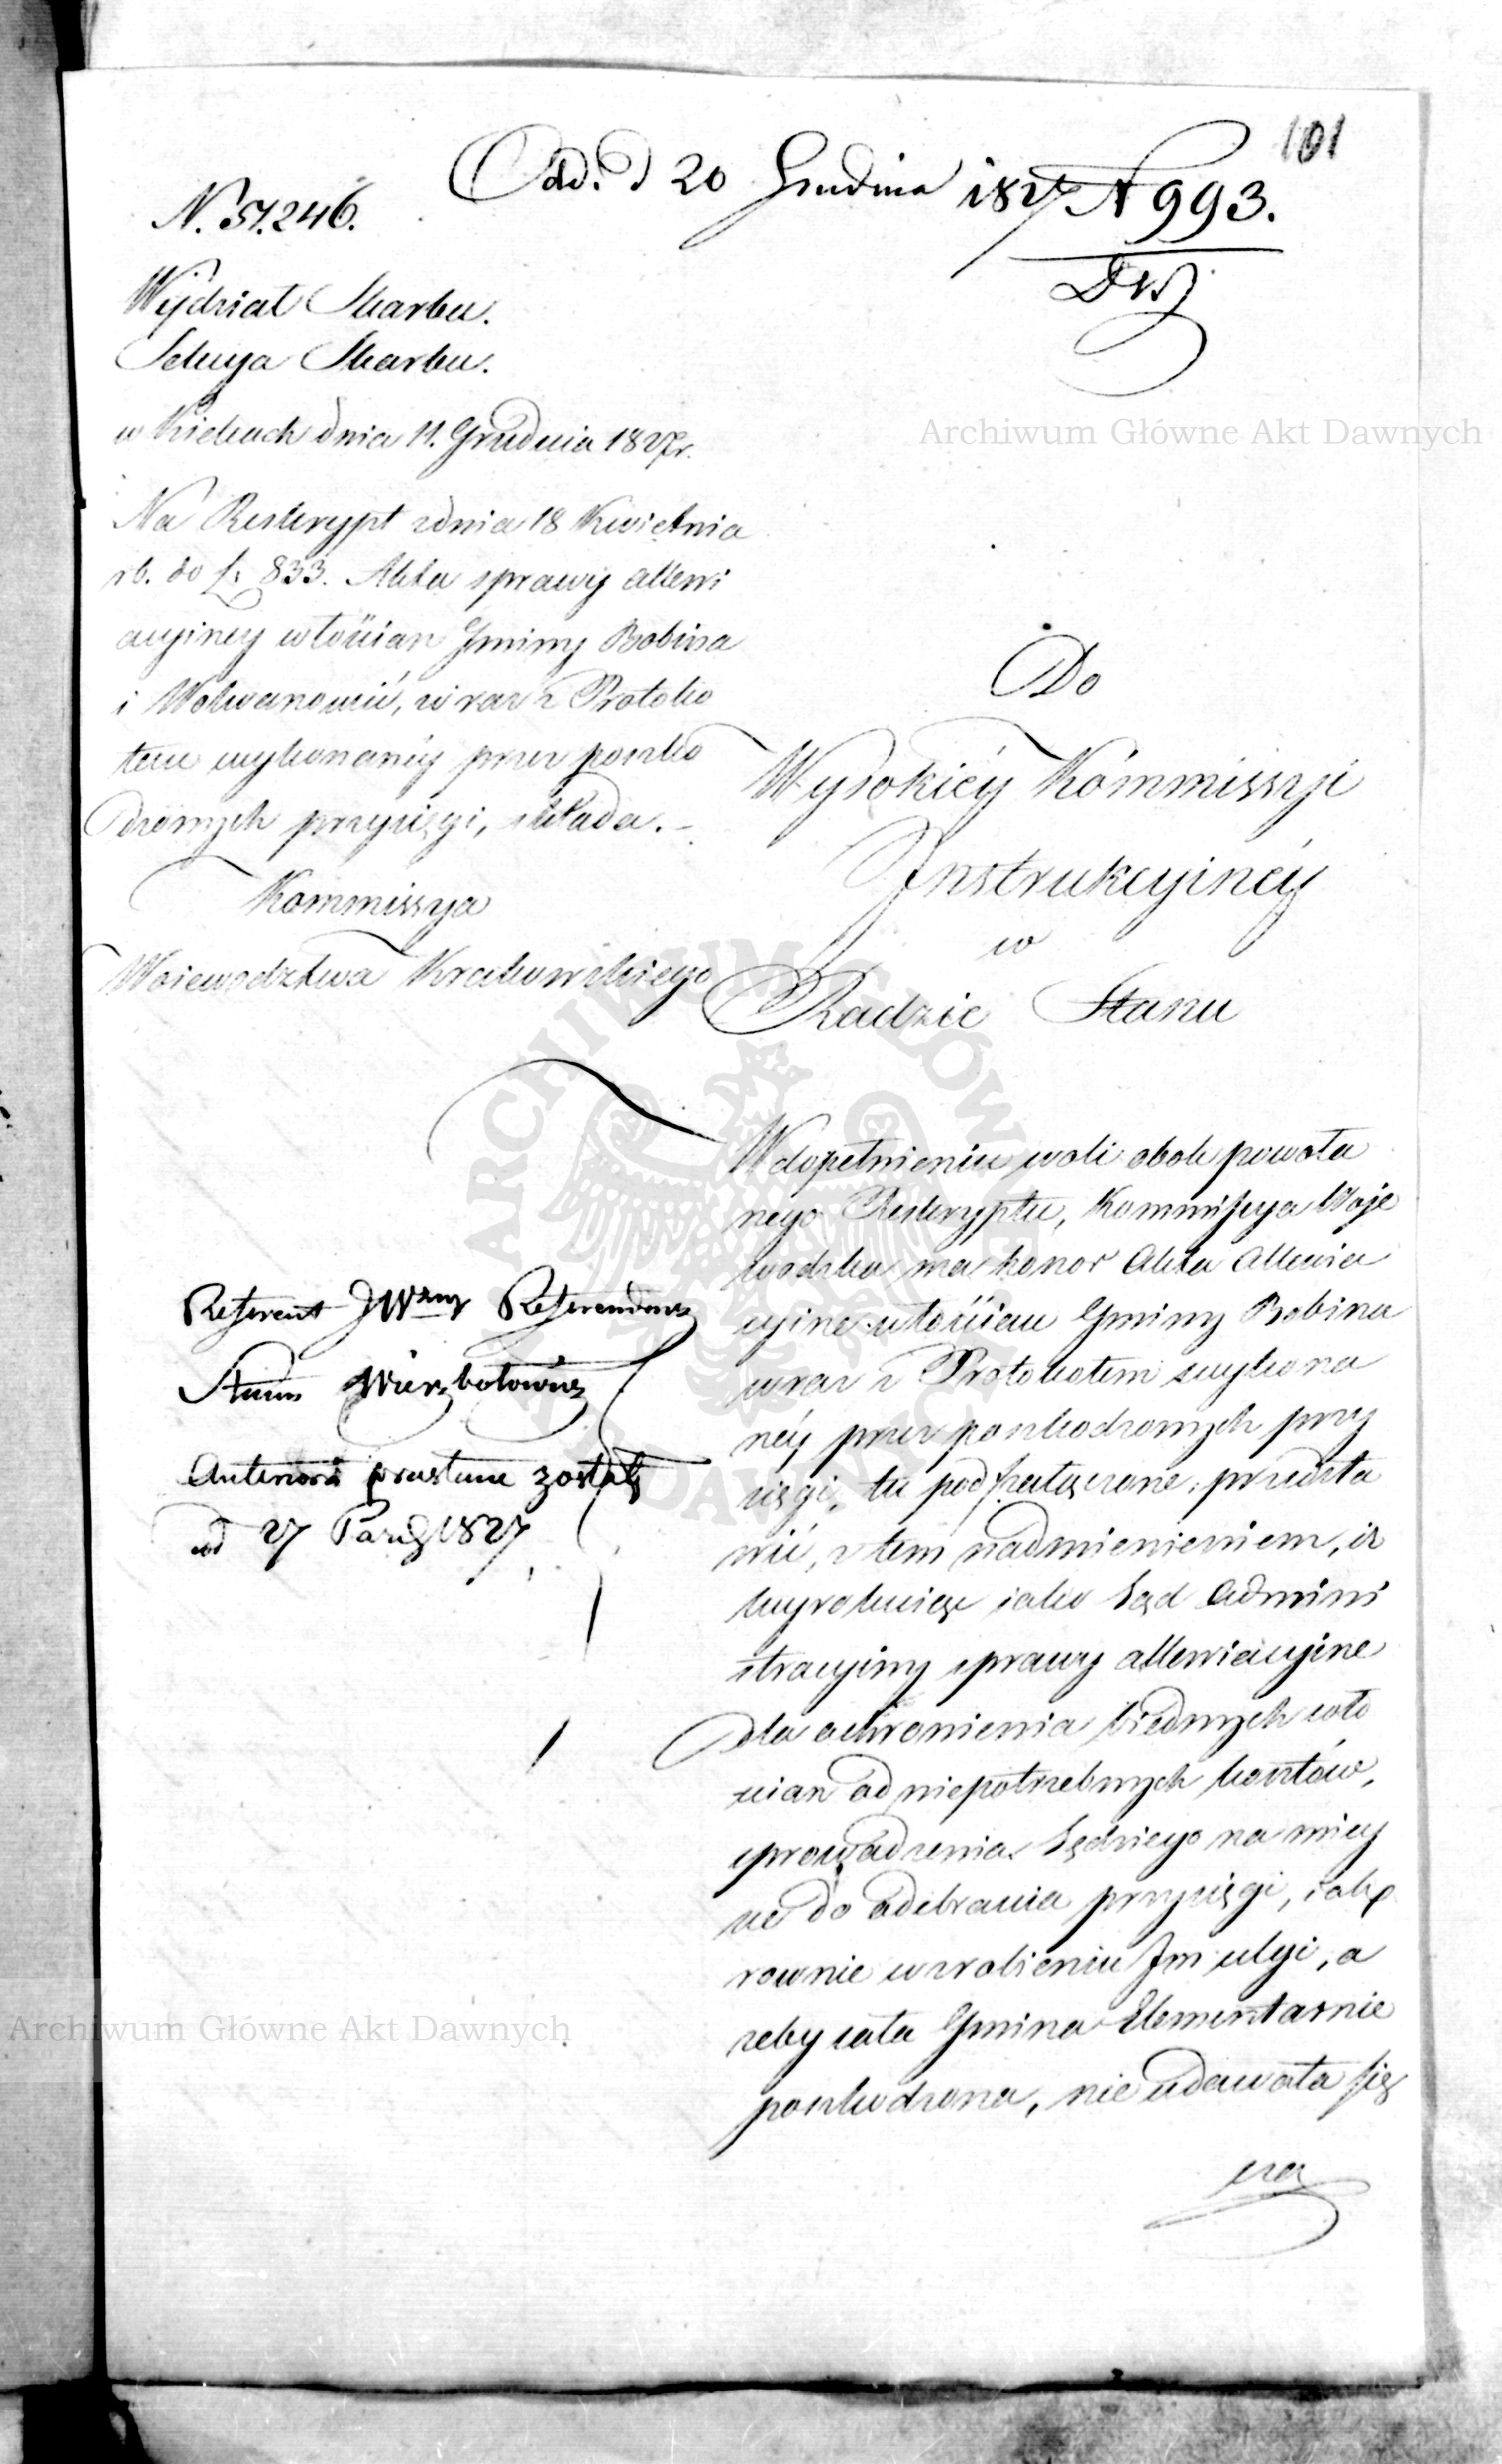 101
Odd. d 20 Grudnia 1827 N 993.
N. 51.246.
Wydział Skarbu.
Sekcya Skarbu.
w Kielcach dnia 11. Grudnia 1827r.
Na Reskrypt z dnia 18 Kwietnia
rb. do L: 833. Akta sprawy allewi
acyiney włościan Gminy Bobina
i Wolwanowic, wraz z Protoko
łem wykonanéy przez poszko
dzonych przysięgi, składa.
Kommissya
Woiewodztwa Krakowskiego
Do
Wysokiéy Kommissyi
Instrukcyinéy
w
Radzie Stanu
W dopełnieniu woli obok powoła
nego Reskryptu, Kommissya Woje
wodzka ma honor Akta Allewia
cyine włościan Gminy Bobina
wraz z Protokołem z wykona
néy przez poszkodzonych przy
sięgi, tu pod załączone, przedsta
wić, z tem nadmienieniem, iż
wyrokuiąc iako Sąd Admini
stracyiny sprawy allewiacyine
dla ochronienia biednych wło
ścian od niepotrzebnych kosztów,
sprowadzenia Sędziego na miey
sce do odebrania przysięgi, iako
rownie w zrobieniu Im ulgi, a
żeby cała Gmina Elementarnie
poszkodzona, nie udawała się
Referent JWny Referendarz
Stanu Wierzbołowicz
Anteriora przesłane zostały
od 27 Paźdz 1827
Archiwum Główne Akt Dawnych
ARCHIWUM GŁÓWNE AKT DAWNYCH
Archiwum Główne Akt Dawnych